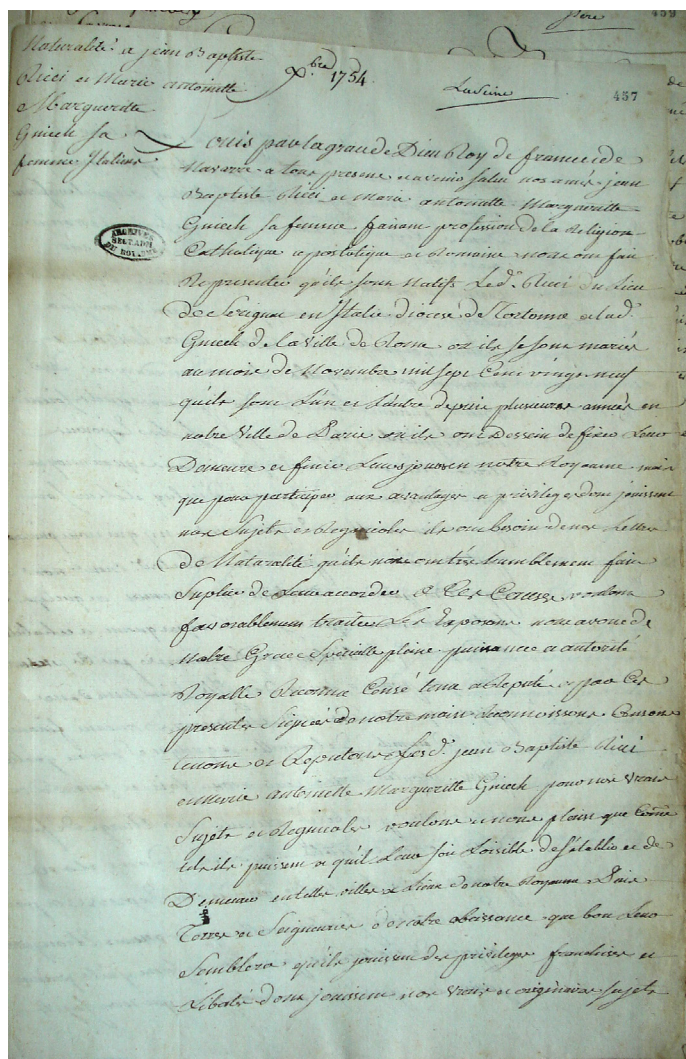 Naturalité a jean Baptiste
Ricci et Marie antoinette
Margueritte
Gniech sa
femme Italiens
Xbre 1754.
457
ARCHIVES
DU ROYAUME
Louis par la grace de Dieu Roy de france et de
Navarre a tous presens et avenir salut nos amés jean
Baptiste Ricci et Marie antoinette Margueritte
Gniech sa femme faisant profession de la Religion
Catholique apostolique et Romaine nous ont fait
Representer qu'ils sont natifs Led. Ricci du Lieu
de en Italie diocése de Tortonne et lad.
Gniech de la Ville de Rome où ils se sont mariés
au mois de Novembre mil sept Cent vingt neuf
qu'ils sont L'un et L'autre depuis plusieurs années en
notre Ville de Paris où ils ont Dessein de fixer Leur
Demeure et finir Leurs jours en notre Royaume mais
que pour participer aux avantages et privileges dont jouissent
nos Sujets et Regnicoles ils ont besoin de nos Lettres
de Naturalité qu'ils nous ont très humblement fait
Suplier de Leur accorder A Ces Causes voulant
favorablement traiter Les Exposans nous avons de
Notre Grace Spécialle plaine puissance et autorité
Royalle Reconnu Censé tenu et Reputé et par Ces
presentes Signées de notre main Reconnoissons Censons
tenons et Reputons lesd. jean Baptiste Ricci
et Marie antoinette Margueritte Gniech pour nos Vrais
Sujets et Regnicoles voulons et nous plaist que Comme
tels ils puissent et qu'il Leur soit Loisible de s'établir et de
Demeurer en telles villes et Lieux de notre Royaume Païs
Terres et Seigneuries de notre obeissance que bon Leur
Semblera qu'ils jouissent des privileges franchises et
Libertés dont jouissent nos Vrais et originaires Sujets